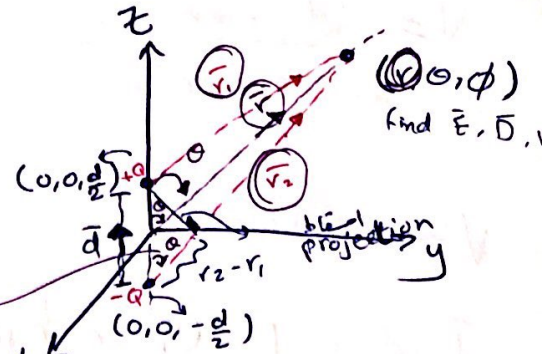 z
r̄₁
r̄
(r, θ, ϕ)
find Ē, D̄, V
θ
(0,0,d/2) +Q
r̄₂
d̄
θ
θ
projection
y
r₂-r₁
-Q
(0,0,-d/2)